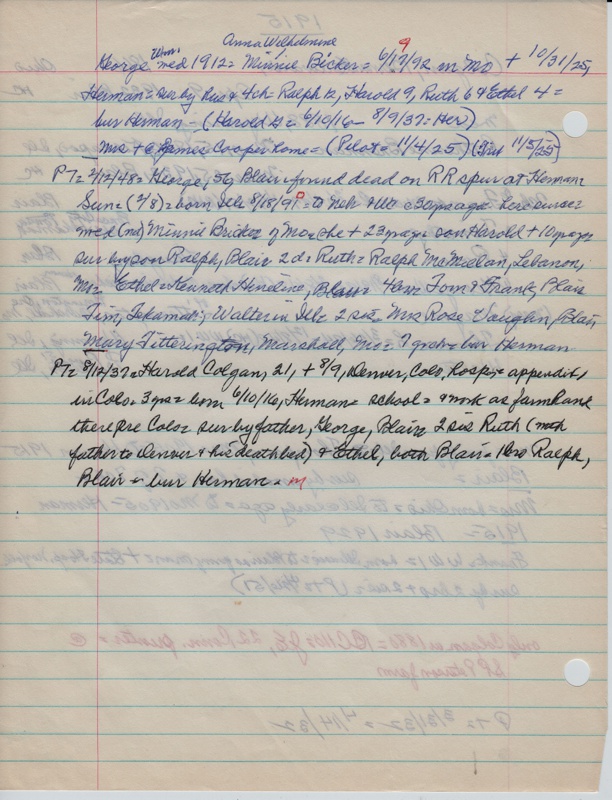 Anna Wilhelmine
George Wm. med 1912 = Minnie Bicker = 6/17/92 in Mo + 10/31/25,
9
Herman = sur by hus & 4ch - Ralph 12, Harold 9, Ruth 6 & Ethel 4 =
bur Herman - (Harold d = 6/10/16 - 8/9/37 = Her)
Mrs + @ James Cooper home = (Pilot = 11/4/25)
PT = 2/12/48 = George, 56 Blair found dead on RR spur at Herman
Sun = (2/8) = born Ills 8/18/91 = to Neb 30 yrs ago here since
med (nd) Minnie Bricker of Mo = she + 23 yrs ago son Harold + 10 yrs ago
sur by son Ralph, Blair 2d = Ruth = Ralph McMillan, Lebanon,
Mo = Ethel = Kenneth Hineline, Blair = 4bro Tom & Frank, Blair
Jim, Tekamah; Walter in Ills 2 sis = Mrs Rose Vaughn, Blair,
Mary Titterington, Marshall, Mo = 7 gch = bur Herman
PT = 8/12/37 = Harold Colgan, 21, + 8/9, Denver, Colo, hosp, = appendicitis
in Colo = 3 yrs = born 6/10/16, Herman = school = & work as farm hand
there pre Colo = sur by father, George, Blair 2 sis Ruth (with
father to Denver & his death bed) & Ethel, both Blair = 1 bro Ralph,
Blair = bur Herman = m